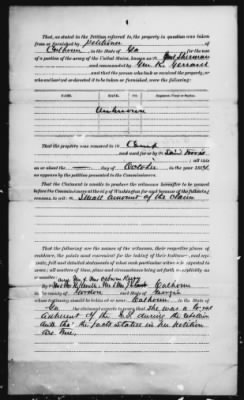 That, as stated in the Petition referred to, the property in question was taken
from or furnished by Petitioner of
Calhoun in the State of Ga for the use
of a portion of the army of the United States, known as Genl Sherman
and commanded by Gen K. Gerrard
and that the person who took or received the property, or
who authorized or directed it to be taken or furnished, were the following:
NAME. RANK.
Unknown
That the property was removed to Camp
and used for or by said forces
; all this
on or about the day of October in the year 1864,
as appears by the petition presented to the Commissioners.
That the Claimant is unable to produce the witnesses hereinafter to be named
before the Commissioners at the City of Washington for and because of the following
reasons, to wit: Small amount of the claim
That the following are the names of the witnesses, their respective places of
residence, the points most convenient for the taking of their testimony, and sepa-
rately, full and detailed statements of what each particular witness is expected to
prove; all matters of time, place and circumstance being set forth as explicitly as
Calhoun
in county of Gordon and State of Georgia
whose testimony should be taken at Calhoun in the State of
Ga the claimant expects to prove that she was a loyal
adherent of the U.S. during the rebellion
and that the facts stated in her petition
are true.